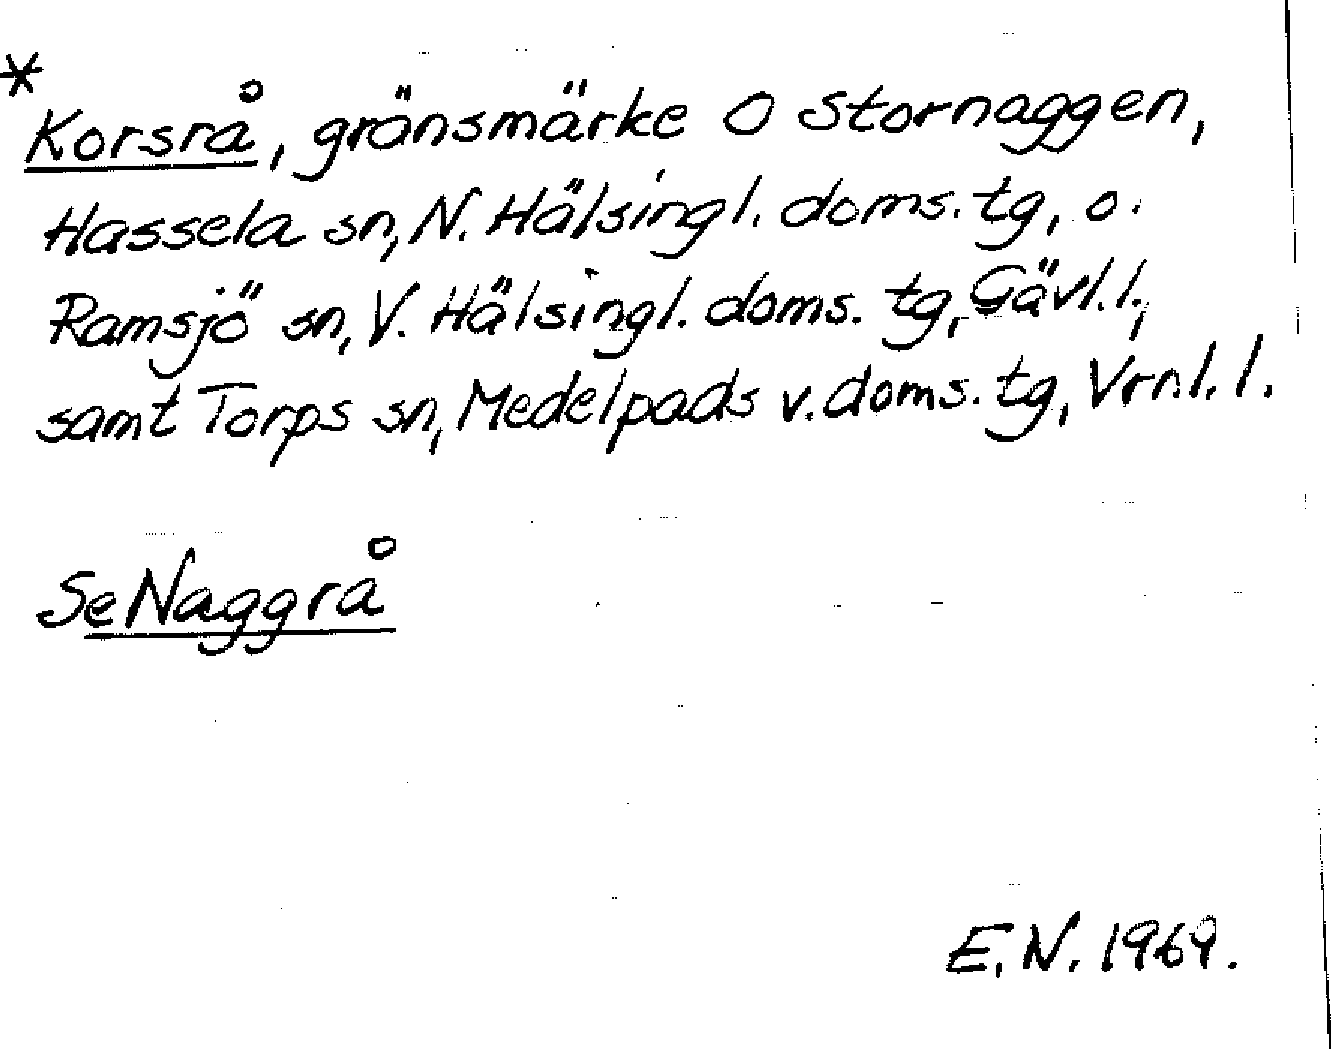 *
Korsrå, gränsmärke O Stornaggen,
Hassela sn, N. Hälsingl. doms. tg, o.
Ramsjö sn, V. Hälsingl. doms. tg, Gävl. l.,
samt Torps sn, Medelpads v. doms. tg, Vrnl. l.
Se Naggrå
E. N. 1969.